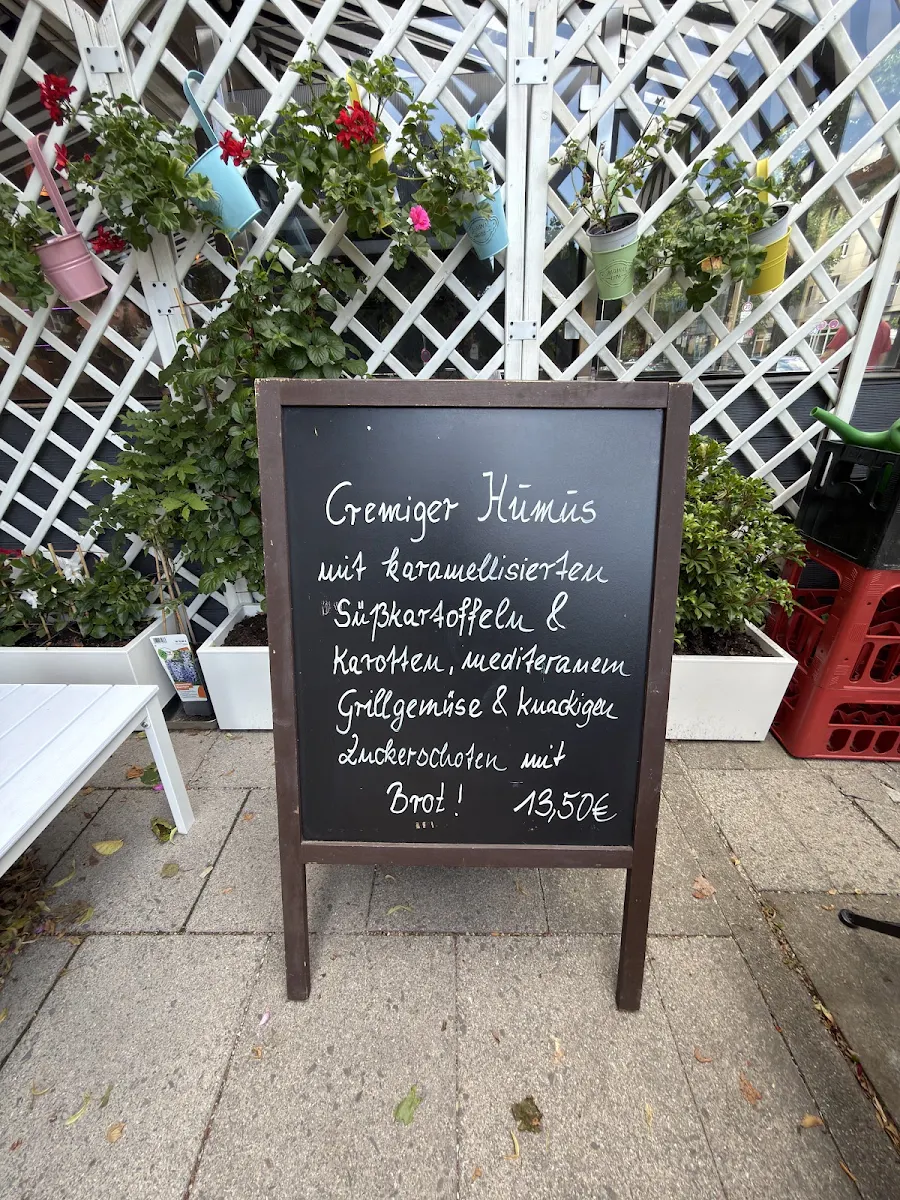 Cremiger Hūmūs
mit karamellisierten
Süßkartoffeln &
Karotten, mediteranem
Grillgemüse & knackigen
Zuckerschoten mit
Brot! 13,50€